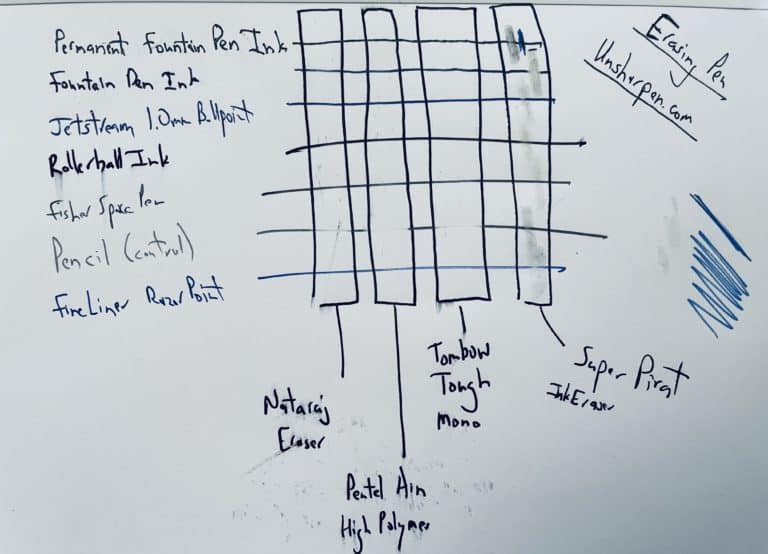 Permanent Fountain Pen Ink
Fountain Pen Ink
Jetstream 1.0mm Ballpoint
Rollerball Ink
Fisher Space Pen
Pencil (control)
FineLiner Razor Point
Erasing Pen
Unsharpen.com
Nataraj
Eraser
Pentel Ain
High Polymer
Tombow
Tough
Mono
Super Pirat
Ink Eraser